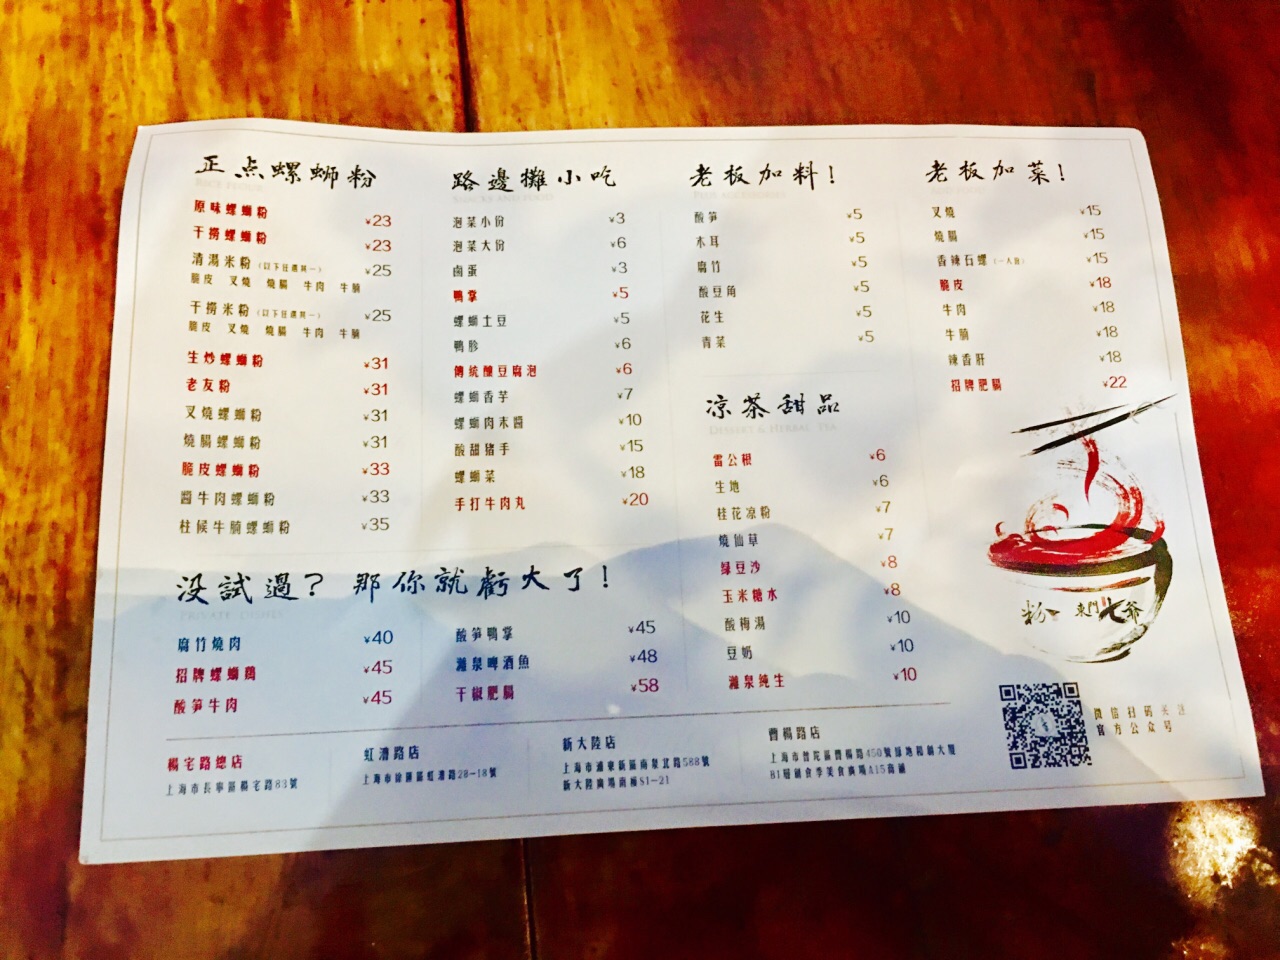 正点螺螄粉
原味螺螄粉 ¥23
干撈螺螄粉 ¥23
清湯米粉（以下任選其一） ¥25
脆皮 叉燒 燒腸 牛肉 牛腩
干撈米粉（以下任選其一） ¥25
脆皮 叉燒 燒腸 牛肉 牛腩
生炒螺螄粉 ¥31
老友粉 ¥31
叉燒螺螄粉 ¥31
燒腸螺螄粉 ¥31
脆皮螺螄粉 ¥33
醬牛肉螺螄粉 ¥33
柱候牛腩螺螄粉 ¥35
路邊攤小吃
泡菜小份 ¥3
泡菜大份 ¥6
鹵蛋 ¥3
鴨掌 ¥5
螺螄土豆 ¥5
鴨胗 ¥6
傳統釀豆腐泡 ¥6
螺螄香芋 ¥7
螺螄肉末醬 ¥10
酸甜猪手 ¥15
螺螄菜 ¥18
手打牛肉丸 ¥20
老板加料！
酸笋 ¥5
木耳 ¥5
腐竹 ¥5
酸豆角 ¥5
花生 ¥5
青菜 ¥5
凉茶甜品
DESSERT & HERBAL TEA
雷公根 ¥6
生地 ¥6
桂花凉粉 ¥7
燒仙草 ¥7
绿豆沙 ¥8
玉米糖水 ¥8
酸梅湯 ¥10
豆奶 ¥10
灕泉纯生 ¥10
老板加菜！
叉燒 ¥15
燒腸 ¥15
香辣石螺（一人份） ¥15
脆皮 ¥18
牛肉 ¥18
牛腩 ¥18
辣香肝 ¥18
招牌肥腸 ¥22
没試過？那你就虧大了！
腐竹燒肉 ¥40
招牌螺螄鷄 ¥45
酸笋牛肉 ¥45
酸笋鴨掌 ¥45
灕泉啤酒魚 ¥48
干椒肥腸 ¥58
粉 東門七爺
微信扫码关注
官方公众号
楊宅路總店
上海市長寧區楊宅路83號
虹漕路店
上海市徐匯區虹漕路28-18號
新大陸店
上海市浦東新區南泉北路588號
新大陸廣場南樓S1-21
曹楊路店
上海市普陀區曹楊路450號綠地和創大厦
B1層鍋食季美食廣場A15商鋪